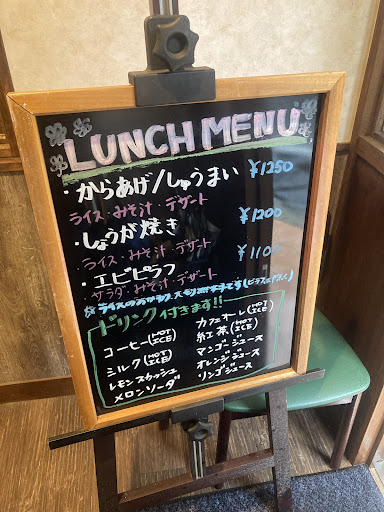 LUNCH MENU
・からあげ/しゅうまい ¥1250
ライス・みそ汁・デザート
・しょうが焼き ¥1200
ライス・みそ汁・デザート
・エビピラフ ¥1100
サラダ・みそ汁・デザート
☆ライスのおかわり、大もり
ドリンク付きます!!
コーヒー(HOT ICE)
ミルク(HOT ICE)
レモンスカッシュ
メロンソーダ
カフェオーレ(HOT ICE)
紅茶(HOT ICE)
マンゴージュース
オレンジジュース
リンゴジュース